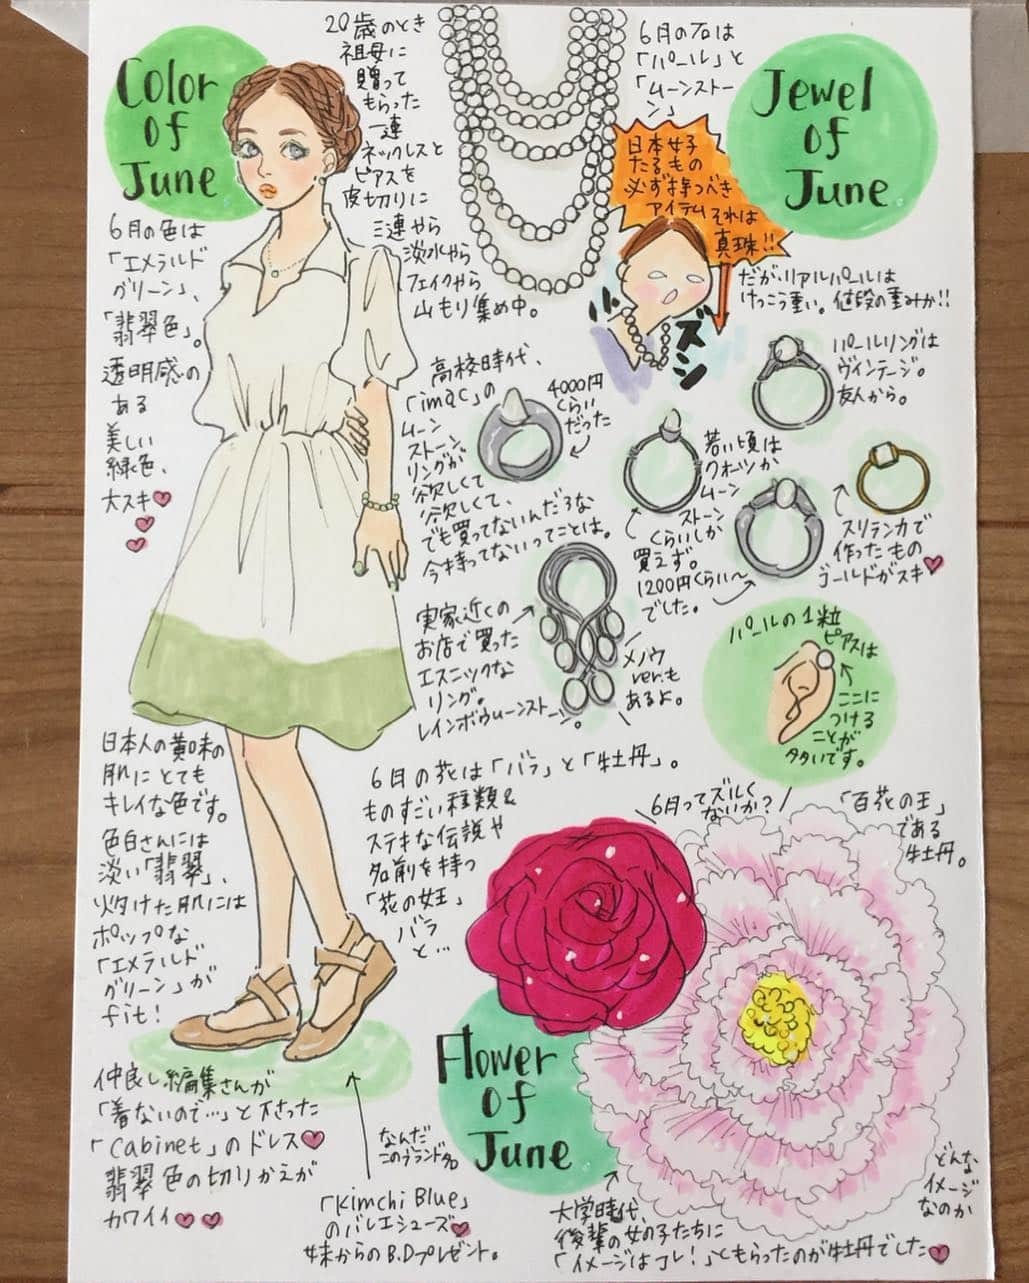 Color
of
June
6月の色は
「エメラルド
グリーン」、
「翡翠色」。
透明感の
ある
美しい
緑色、
大スキ
20歳のとき
祖母に
贈って
もらった
一連
ネックレスと
ピアスを
皮切りに
三連やら
淡水やら
フェイクやら
山もり集め中。
6月の石は
「パール」と
「ムーンストー
ン」
Jewel
of
June
日本女子
たるもの
必ず持つべき
アイテムそれは
真珠!!
だがリアルパールは
けっこう重い。値段の重みか!!
ズシ
パールリングは
ヴィンテージ。
友人から。
高校時代、
「imac」の
ムーン
ストーン
リングが
欲しくて
欲しくて、
でも買ってないんだろな
今持ってないってことは。
4000円
くらい
だった
若い頃は
クォーツか
ムーン
ストーン
くらいしか
買えず。
1200円くらい〜
でした。
スリランカで
作ったもの
ゴールドがスキ
実家近くの
お店で買った
エスニックな
リング。
レインボウムーンストーン。
メノウ
ver.も
あるよ。
パールの1粒
ピアスは
ここに
つける
ことが
多いです。
日本人の黄味の
肌にとても
キレイな色です。
色白さんには
淡い「翡翠」、
火焼けた肌には
ポップな
「エメラルド
グリーン」が
fit!
6月の花は「バラ」と「牡丹」。
ものすごい種類&
ステキな伝説や
名前を持つ
「花の女王」
バラ
と…
6月ってズルく
ないか?
「百花の王」
である
牡丹。
Flower
of
June
仲良し編集さんが
「着ないので…」と下さった
「Cabinet」のドレス
翡翠色の切りかえが
カワイイ
なんだ
このブランド名
「Kimchi Blue」
のバレエシューズ
妹からのB.Dプレゼント。
大学時代、
後輩の女の子たちに
「イメージはコレ!」ともらったのが牡丹でした
どんな
イメージ
なのか